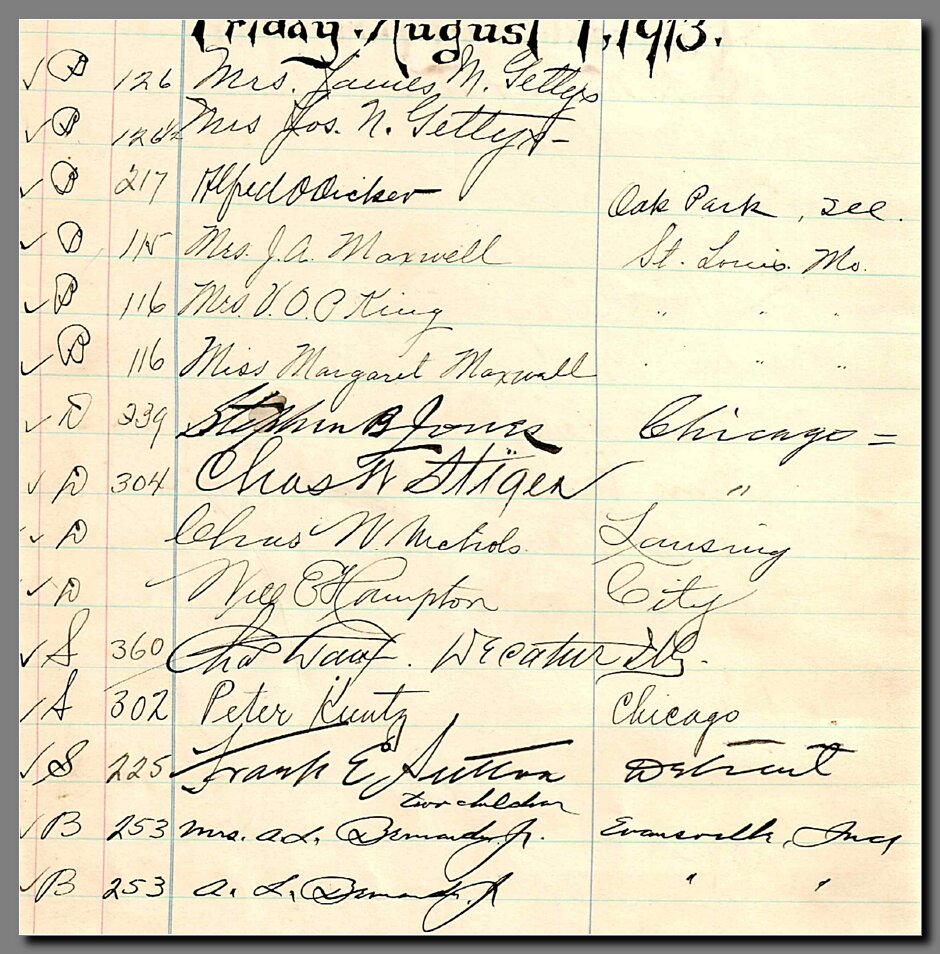 Friday, August 1, 1913.
✓ B 126 Mrs. James N. Gettys
✓ B 126½ Mrs Jos. N. Gettys -
✓ B 217 Alfred O Dicker Oak Park, Ill.
✓ D 115 Mrs. J. A. Maxwell St. Louis. Mo.
✓ B 116 Mrs. V. O. C King " " "
✓ B 116 Miss Margaret Maxwell " " "
✓ D 239 Stephen B Jones Chicago =
✓ D 304 Chas W Stiger "
✓ D Chas W. Nichols. Lansing
✓ D Will E Hampton City
✓ S 360 Chas. Decatur Ills.
✓ S 302 Peter Kuntz Chicago
✓ S 225 Frank E Sutton Detroit
two children
✓ B 253 Mrs. A. L. Jr. Evansville, Ind
✓ B 253 A. L. Jr " "